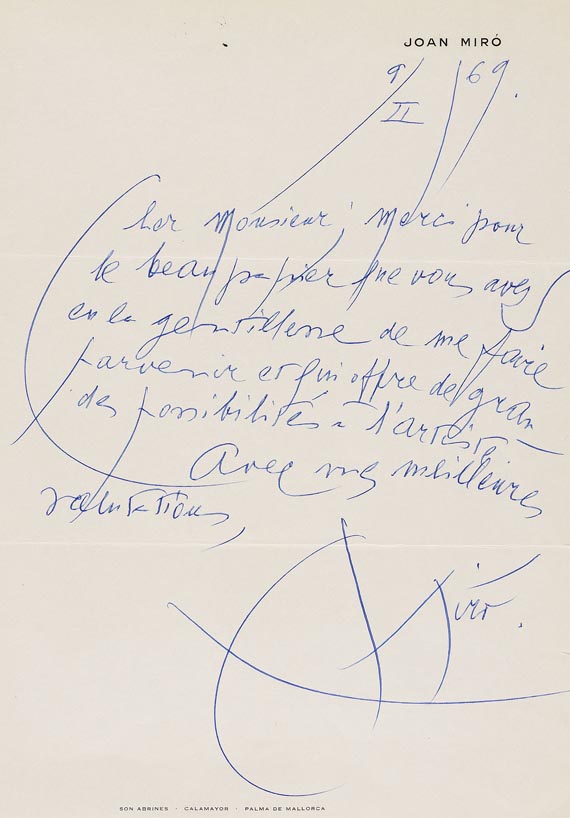 JOAN MIRÓ
9/II/69.
Cher Monsieur, merci pour
le beau papier que vous avez
eu la gentillesse de me faire
parvenir et qui offre de gran-
des possibilités a l'artiste
Avec mes meilleures
salutations,
Miró.
SON ABRINES · CALAMAYOR · PALMA DE MALLORCA